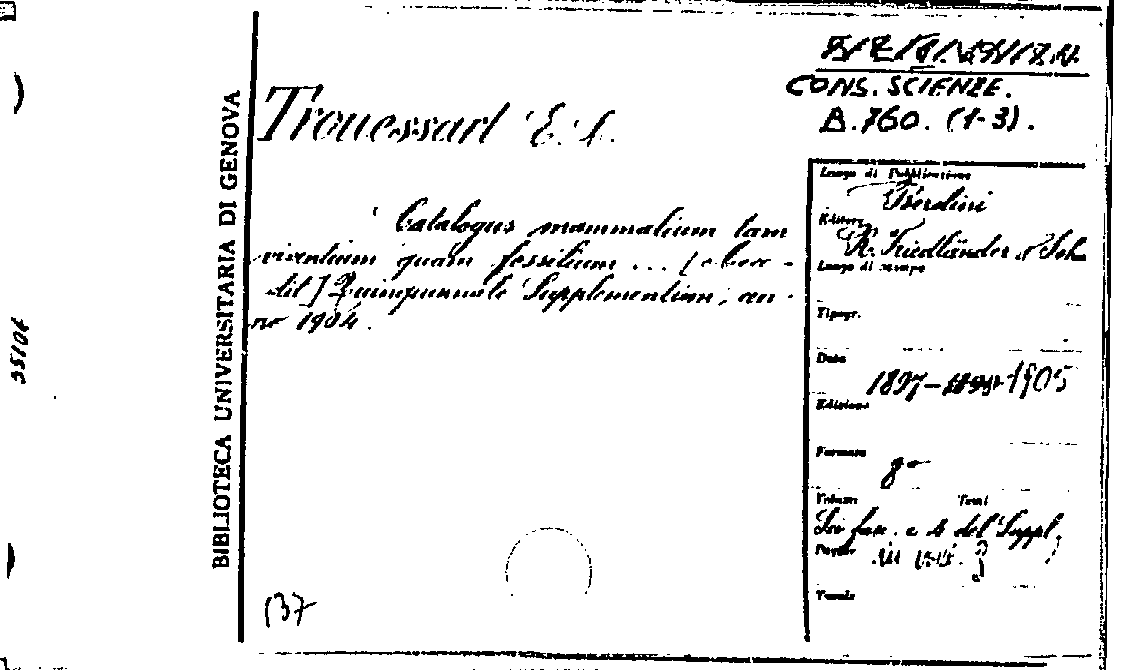 CONS. SCIENZE.
B.760. (1-3).
BIBLIOTECA UNIVERSITARIA DI GENOVA
Trouessart E. L.
Catalogus mammalium tam
viventium quam fossilium ...
Quinquennale Supplementum; an-
no 1904.
Luogo di Pubblicazione
Berolini
Editore
R. Friedländer & Sohn
Luogo di stampa
Tipogr.
Data
1897-1899-1905
Edizione
Formato
8°
Volume Tomi
fasc. e 4 del Suppl.
Pagine in voll. 3
Tavole
137